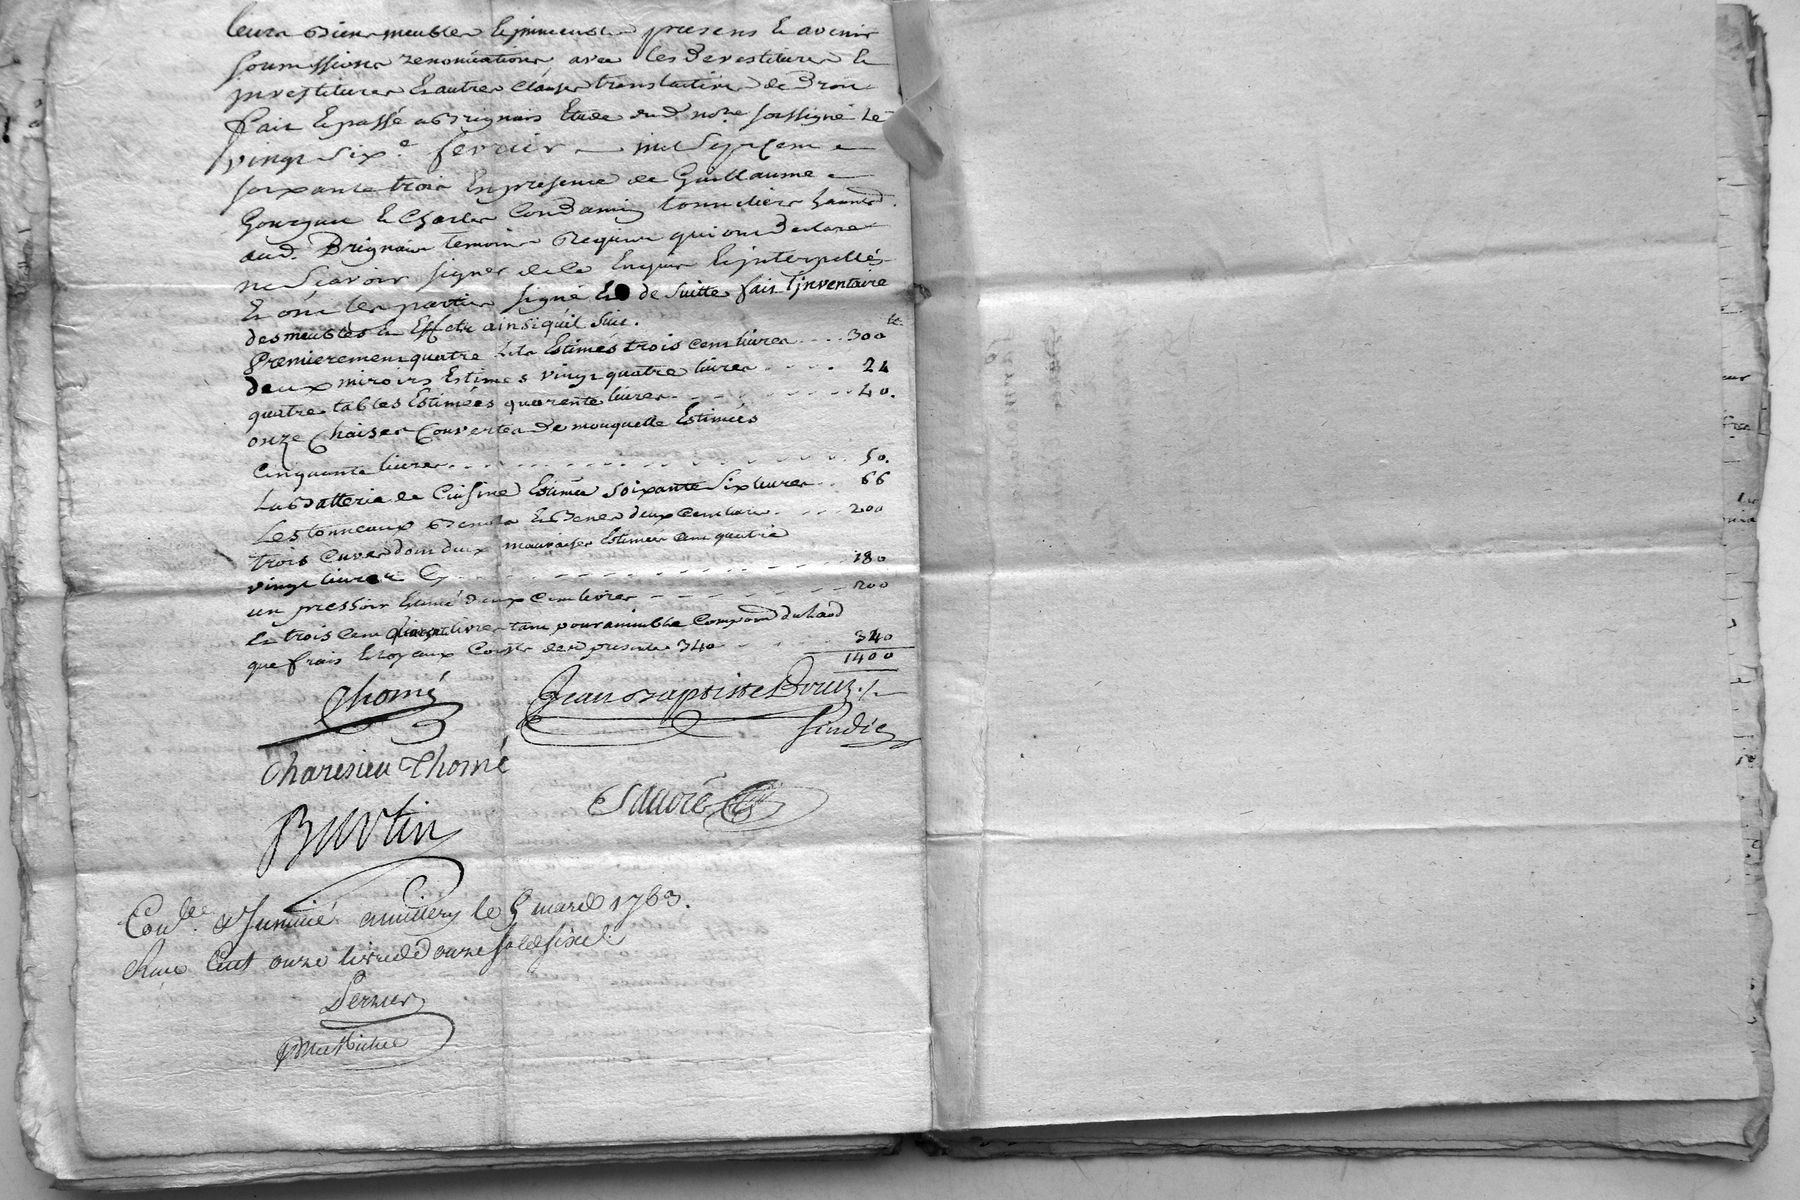 leurs biens meubles & immeubles presens & avenir
soumissions renonciations avec les devestitures &
investitures & autres clauses translatives de droit
fait & passé a Brignais Etude dud. no.re soussigné Le
vingt six.e fevrier mil sept cent
soixante trois En presence de Guillaume
Gourgau & Charles Condamin tonneliers
aud. Brignais temoins Requis qui ont Declaré
ne Sçavoir signer de ce Enquis & interpellés
Et ont les parties signé Et de suitte fait l'jnventaire
des meubles & Effets ainsi qu'il suit.
Premierement quatre Lits Estimes trois cent livres .... 300 tt.
deux miroirs Estimes vingt quatre livres .... 24
quatre tables Estimées quarente livres .... 40.
onze Chaises Couvertes de mouquette Estimées
Cinquante livres .... 50.
La Batterie de Cuisine Estimée soixante six livres .. 66
Les tonneaux Bennots & Benes deux cent livres .... 200
trois Cuves dont deux mauvaises Estimées cent quatre
vingt livres Cy .... 180
un pressoir Estimé deux cent livres .... 200
Et trois cent quarante livres tant pour
que frais & loyaux Couts des presentes 340 .. 340
1400
Thomé
Jean Baptiste
sindic
Charesieu Thomé
Burtin
Sauoré
Con.lé & Jnsinué a millery le 5 mars 1763.
Reçu Cent onze livres douze sols six d.
Pernier